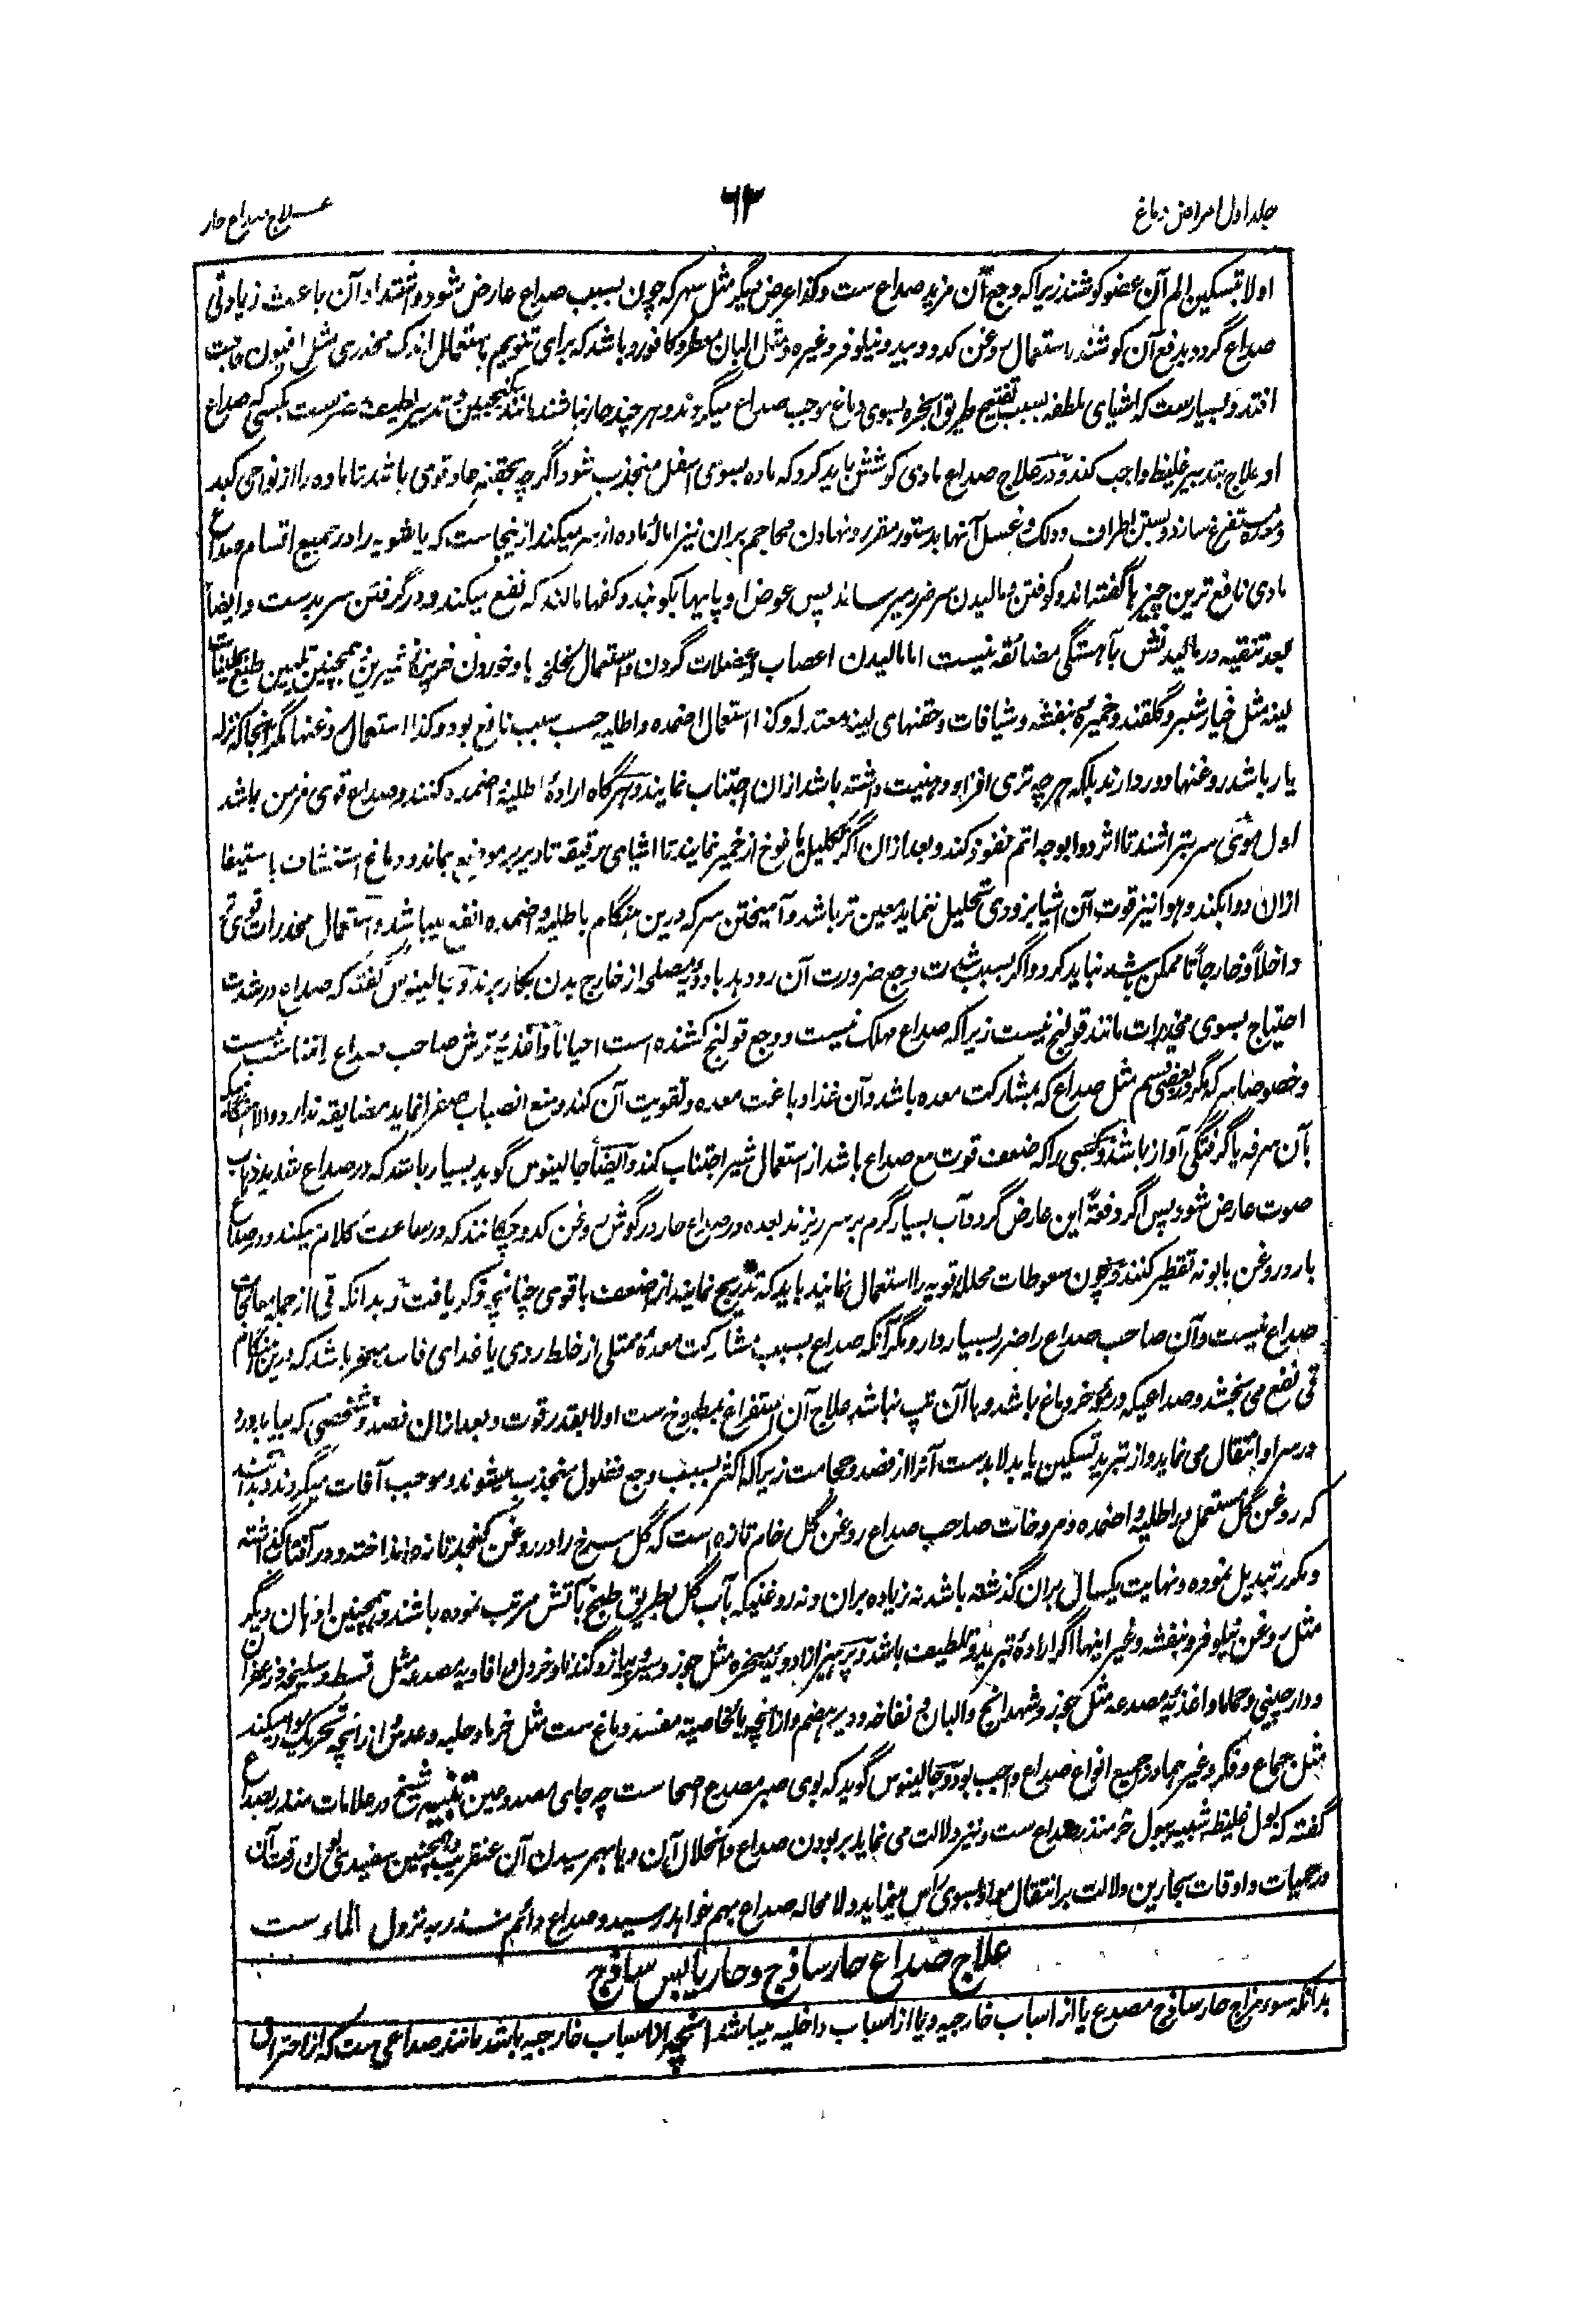 جلد اول امراض دماغ
۶۳
علاج صداع حار
اولا بتسکین الم آن عضو کوشند زیرا که وجع آن مزید صداع ست و کذا عرض دیگر مثل سهر که چون بسبب صداع عارض شود و اشتداد آن باعث زیادتی
صداع گردد بدفع آن کوشند باستعمال روغن کدو و بید و نیلوفر و غیره و مثل البان معطر و کافور و باشد که برای تنویم باستعمال اندک مخدری مثل افیون حاجت
افتد و بسیارست که اشیای ملطفه بسبب تفتیح طریق ابخره بسوی دماغ موجب صداع میگردند و هر چند حار نباشند مانند سکنجبین و تدبیر لطیف مضرست بکسی که صداع
او علاج بتدبیر غلیظ واجب کند و در علاج صداع مادی کوشش باید کرد که ماده بسوی اسفل منجذب شود اگرچه بحقنه حاد قوی باشد تا ماده را از نواحی کبد
و معده مستفرغ سازد و بستن اطراف و دلک و غسل آنها بدستور مقرره و نهادن محاجم بران نیز اماله ماده از سر میکند ازینجاست که پاشویه را در جمیع اقسام صداع
مادی نافع ترین چیزها گفته‌اند و کوفتن و مالیدن سر ضرر میرساند پس عوض او پایها بکوبند و کفها مالند که نفع میکند و در گرفتن سر بدست و ایضاً
بعد تنقیه در مالیدنش بآهستگی مضائقه نیست اما مالیدن اعصاب و عضلات گردن و استعمال خلخلی یا و خوردن خربزه شیرین و همچنین تلیین طبع بملینات
لینه مثل خیارشنبر و گلقند و خمیره بنفشه و شیافات و حقنهای لینه معتدله و کذا استعمال اضمده و اطلیه حسب سبب نافع بود و کذا استعمال روغنها مگر آنجا که نزله
یار باشد روغنها دور دارند بلکه هر چه تری افزاید و دهنیت داشته باشد ازان اجتناب نمایند و هرگاه ارادهٔ اطلیه و اضمده کنند و صداع قوی مزمن باشد
اول موی سر بتراشند تا اثر دوا بوجه اتم نفوذ کند و بعد ازان اگر تکلیل یافوخ از خمیر نمایند تا اشیای رقیقه تا دیر بر موضع بماند و دماغ استنشاف باستیفا
ازان دوا بکند و هوا نیز قوت آن اشیا بزودی تحلیل ننماید معین تر باشد و آمیختن سرکه درین هنگام باطلیه و اضمده انفع میباشد و استعمال مخدرات قوی
داخلاً و خارجاً تا ممکن باشد نباید کرد و اگر بسبب شدت وجع ضرورت آن رو دهد با دویه مصلح از خارج بدن بکار برند و جالینوس گفته که صداع در شدت
احتیاج بسوی مخدرات مانند قولنج نیست زیرا که صداع مهلک نیست و وجع قولنج کشنده است احیاناً و اغذیه ترش صاحب صداع را نامناسب ست
و خصوصا سرکه مگر در بعضی قسم مثل صداع که بمشارکت معده باشد و آن غذا دباغت معده و تقویت آن کند و منع انصباب صفرا نماید مضایقه ندارد
بآن سرفه یا گرفتگی آواز باشد و کسی را که ضعف قوت مع صداع باشد از استعمال شیر اجتناب کند و ایضاً جالینوس گوید بسیار باشد که در صداع شدید ذهاب
صوت عارض شود پس اگر دفعة این عارض گردد آب بسیار گرم بر سر ریزند بعده در صداع حار در گوش روغن کدو چکانند که در ساعت کلام میکند و در صداع
بارد روغن بابونه تقطیر کنند و چون سعوطات محلل قویه را استعمال نمایند باید که تدریج نمایند از ضعیف باقوی چنانچه ذکر یافت و بدانکه قی از جمله معالجات
صداع نیست و آن صاحب صداع را ضرر بسیار دارد مگر آنکه صداع بسبب مشارکت معدهٔ ممتلی از خلط ردی یا غذای فاسد مبخر باشد که درین هنگام
قی نفع می بخشد و صداعیکه در مؤخر دماغ باشد و باآن تپ نباشد علاج آن استفراغ بمطبوخ ست اولا بقدر قوت و بعد ازان فصد و شخصی که بیابد درد
در سر او انتقال می نماید و از تبرید تسکین یابد لا بدست آنرا از فصد و حجامت زیرا که اکثر بسبب وجع فضول منجذب میشوند و موجب آفات میگردند
که روغن گل مستعمل در اطلیه و اضمده و مروخات صاحب صداع روغن گل خام تازه است که گل سرخ را در روغن کنجد تازه انداخته و در آفتاب گذاشته
و مکرر تبدیل نموده و نهایت یکسال بران گذشته باشد نه زیاده بران و نه روغنیکه بآب گل بطریق طبخ بآتش مرتب نموده باشند و همچنین ادهان دیگر
مثل روغن نیلوفر و بنفشه و غیر اینها اگر ارادهٔ تبرید و تلطیف باشد و پرهیز از ادویه مبخره مثل جوز و سیر و پیاز و گندنا و خردل و افاویه مصدعه مثل قسط و سلیخه و زعفران
و دارچینی و حماما و اغذیه مصدعه مثل جوز و شهدانج و البان و نفاخه و دیر هضم و از آنچه بالخاصیة مفسد دماغ ست مثل خرما و حلبه و عدس و از آنچه تحریک مواد میکند
مثل جماع و فکر و غیرهما در جمیع انواع صداع واجب بود و جالینوس گوید که بوی صبر مصدع اصحا ست چه جای مصدوعین تنبیه شیخ در علامات منذر بصداع
گفته که بول غلیظ شبیه ببول خر منذر صداع ست و نیز دلالت می نماید بر بودن صداع و انحلال آن و یا بهمرسیدن آن عنقریب و همچنین سفیدی بول و رقت آن
در حمیات و اوقات بحارین دلالت بر انتقال مواد بسوی راس مینماید و لا محاله صداع بهم خواهد رسید و صداع دائم منذر به نزول الماء ست
علاج صداع حار ساذج و حار یابس ساذج
بدانکه سوء مزاج حار ساذج مصدع یا از اسباب خارجیه و یا از اسباب داخلیه میباشد آنچه از اسباب خارجیه باشد مانند صداعی ست که از احتراق